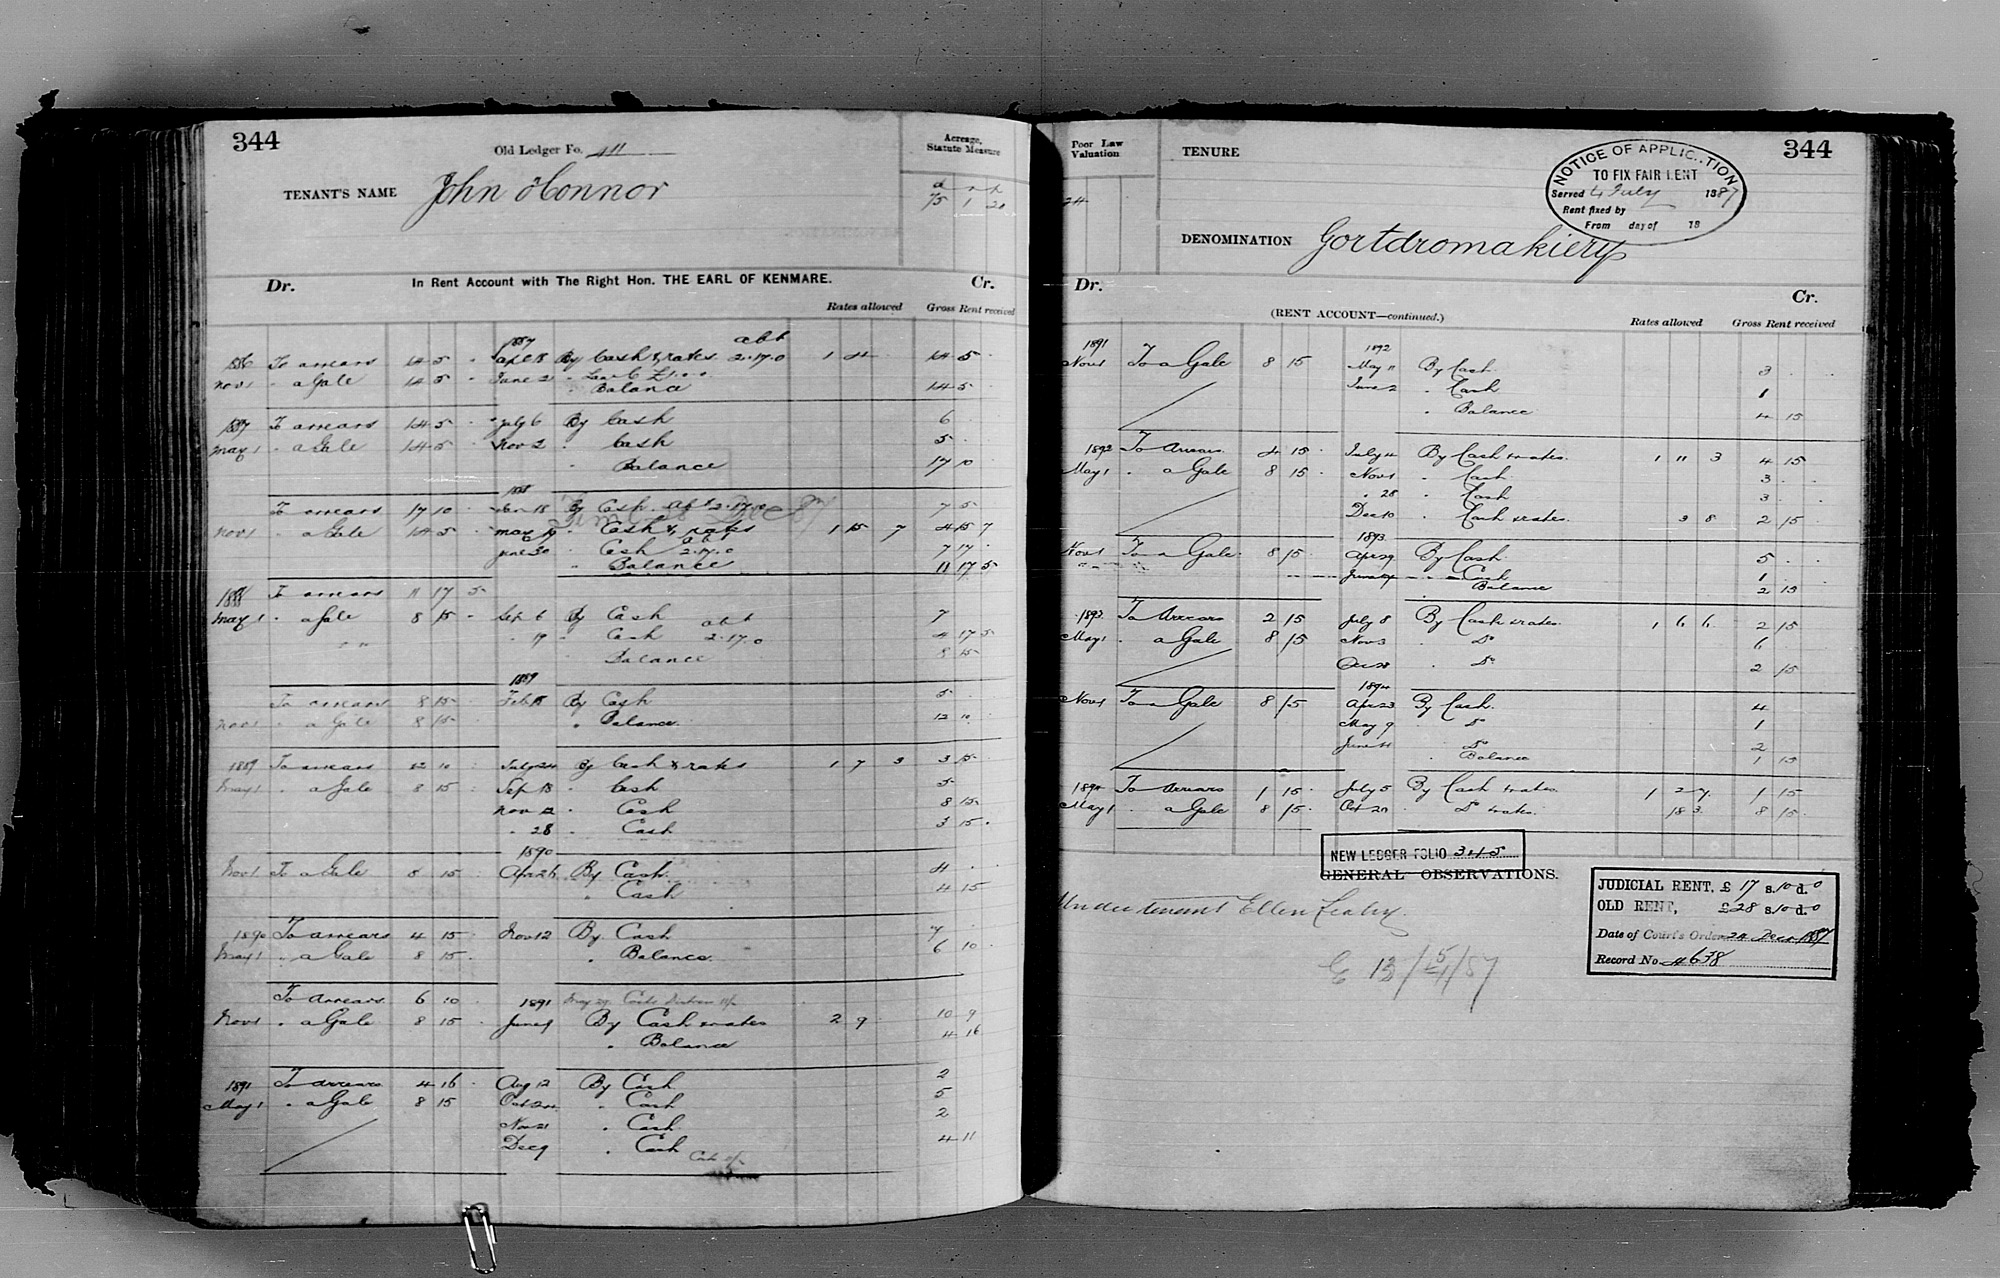 344
Old Ledger Fo. 411
Acreage, Statute Measure
TENANT'S NAME John O'Connor
a r p
75 1 20
In Rent Account with The Right Hon. THE EARL OF KENMARE.
Dr. Cr.
Rates allowed Gross Rent received
1887 abt
1886 To arrears 14 5 - April 18 By Cash & rates 2.17.0 1 4 14 5
Nov 1 " a Gale 14 5 - June 2 " £1.0.0
" Balance 14 5
1887 To arrears 14 5 - July 6 By Cash 6
May 1 " a Gale 14 5 - Nov 2 " Cash 5
" Balance 17 10
1888
To arrears 17 10 Jan 18 By Cash abt 2.17.0 7 5
Nov 1 " a Gale 14 5 May 19 " Cash & rates 1 15 7 4 15 7
June 30 " Cash abt 2.17.0 7 17
" Balance 11 17 5
1888 To arrears 11 17 5
May 1 " a Gale 8 15 - Sep 6 By Cash 7
" 19 " Cash abt 2.17.0 4 17 5
Balance 8 15
1889
To arrears 8 15 Feb 18 By Cash 5
Nov 1 " a Gale 8 15 " Balance 12 10
1889 To arrears 12 10 July 24 By Cash & rates 1 7 3 3 15
May 1 " a Gale 8 15 Sep 18 " Cash 5
Nov 12 " Cash 8 15
" 28 " Cash 3 15
1890
Nov 1 To a Gale 8 15 Apr 26 By Cash 4
" Cash 4 15
1890 To arrears 4 15 Nov 12 By Cash 7
May 1 " a Gale 8 15 " Balance 6 10
To arrears 6 10 1891 May 29
Nov 1 " a Gale 8 15 June 9 By Cash & rates 2 9 10 9
" Balance 4 16
1891 To arrears 4 16 Aug 12 By Cash 2
May 1 " a Gale 8 15 Oct 24 " Cash 5
Nov 21 " Cash 2
Dec 9 " Cash 4 11
344
Poor Law Valuation
24
TENURE
NOTICE OF APPLICATION
TO FIX FAIR RENT
Served 4 July 1887
Rent fixed by
From day of 18
DENOMINATION Gortdromakiery
Dr. Cr.
(RENT ACCOUNT—continued.)
Rates allowed Gross Rent received
1891 1892
Nov 1 To a Gale 8 15 May 11 By Cash 3
June 2 " Cash 1
" Balance 4 15
1892 To Arrears 4 15 July 4 By Cash & rates 1 11 3 4 15
May 1 " a Gale 8 15 Nov 1 " Cash 3
" 28 " Cash 3
Dec 10 " Cash & rates 3 8 2 15
1893
Nov 1 To a Gale 8 15 Apr 29 By Cash 5
June 9 " Cash 1
Balance 2 15
1893 To Arrears 2 15 July 8 By Cash & rates 1 6 6 2 15
May 1 " a Gale 8 15 Nov 3 " Do 6
Dec 28 " Do 2 15
1894
Nov 1 To a Gale 8 15 Apr 23 By Cash 4
May 9 " Do 1
June 4 " Do 2
" Balance 1 15
1894 To Arrears 1 15 July 5 By Cash & rates 1 2 7 1 15
May 1 " a Gale 8 15 Oct 20 " Do & rates 18 3 8 15
NEW LEDGER FOLIO 345
GENERAL OBSERVATIONS.
Undertenant Ellen Leahy.
JUDICIAL RENT, £ 17 s. 10 d. 0
OLD RENT, £ 28 s. 10 d. 0
Date of Court's Order 24 Decr 1887
Record No 4638